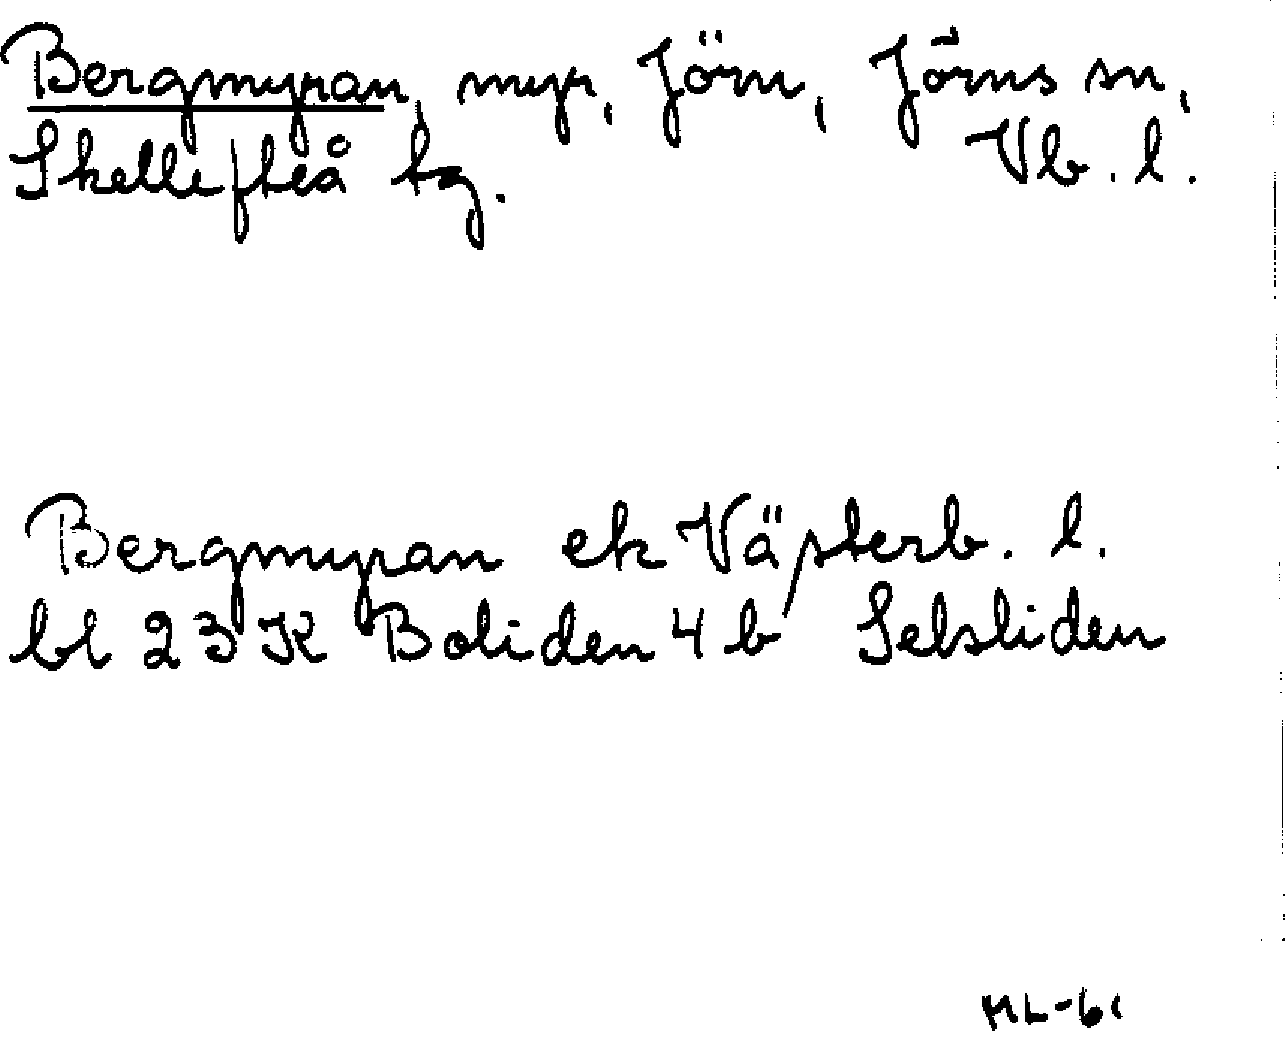 Bergmyran, myr, Jörn, Jörns sn,
Skellefteå tg. Vb. l.
Bergmyran ek Västerb. l.
bl 23 K Boliden 4 b Selsliden
ML-61